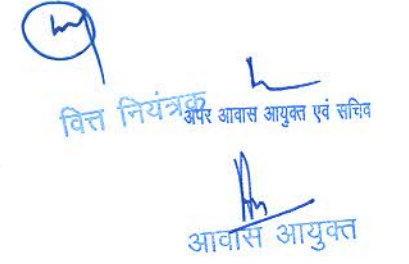 वित्त नियंत्रक
अपर आवास आयुक्त एवं सचिव
आवास आयुक्त